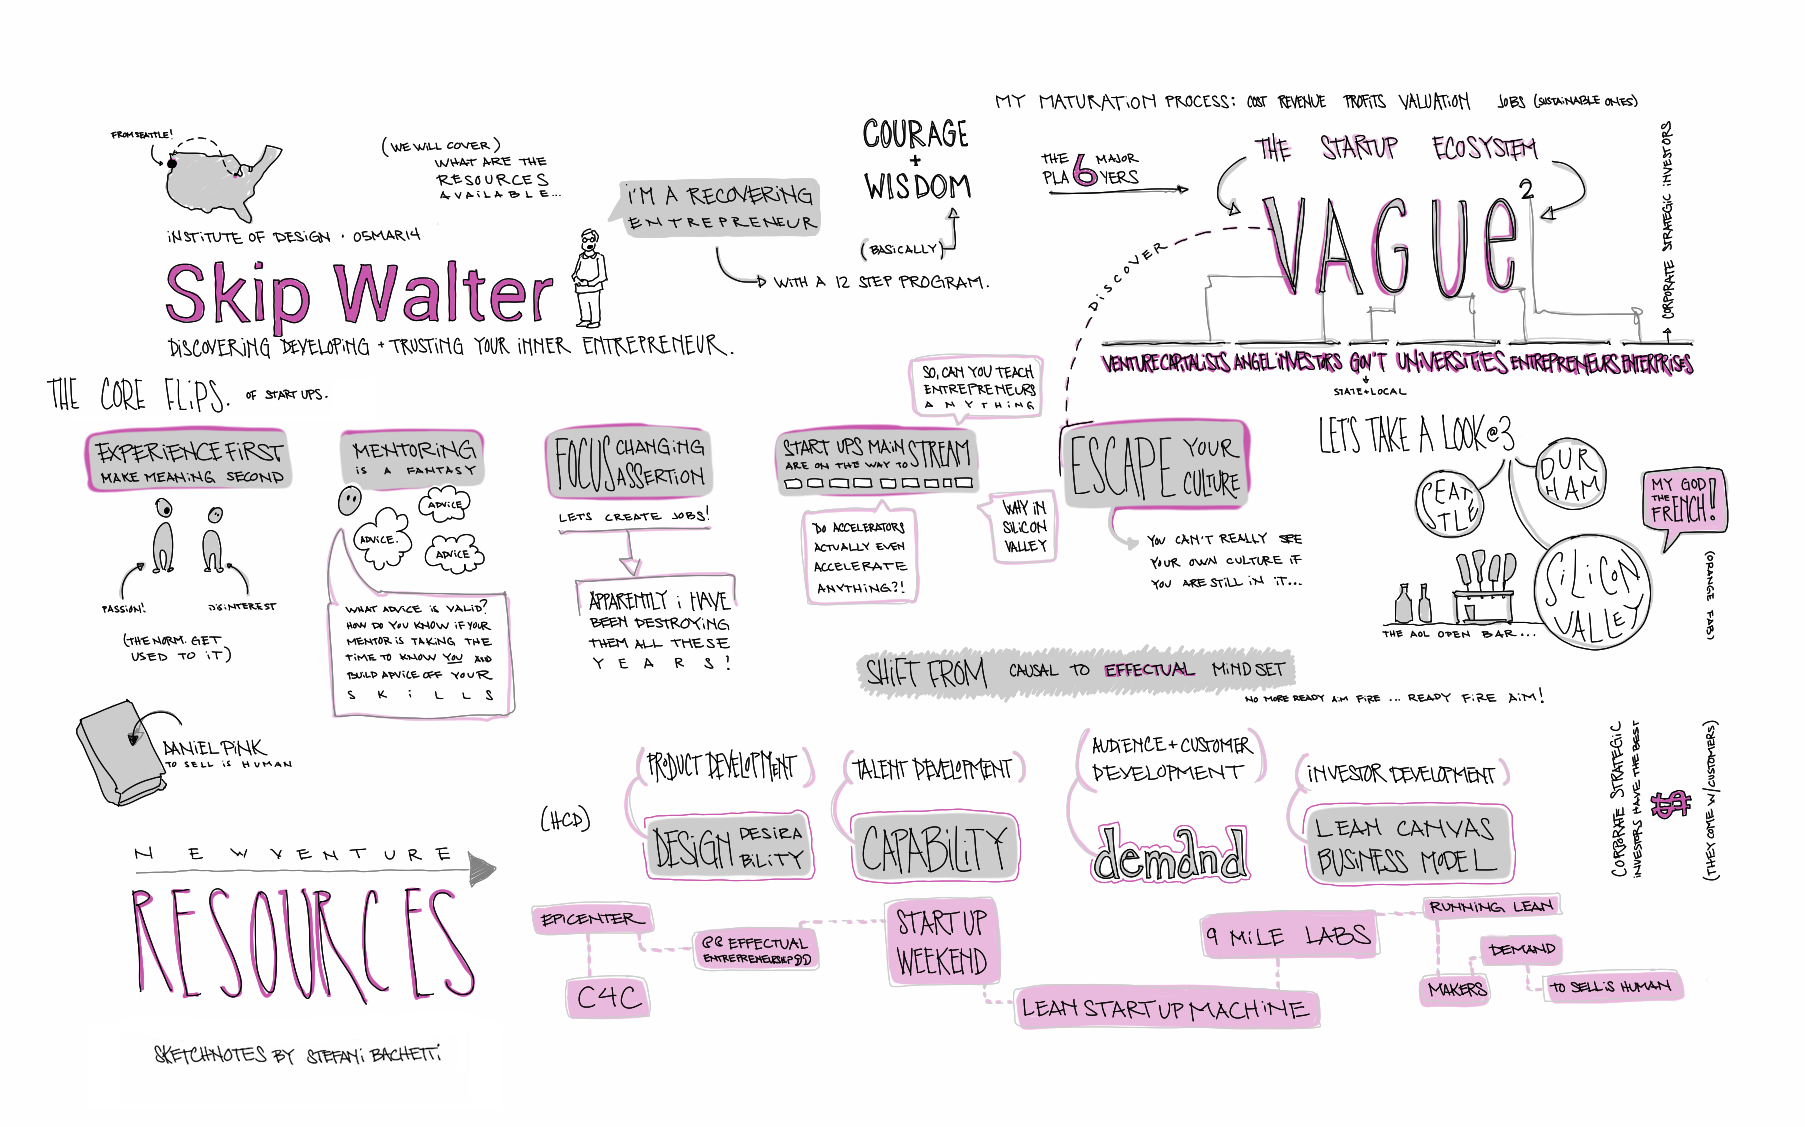 FROM SEATTLE!
(WE WILL COVER)
WHAT ARE THE
RESOURCES
AVAILABLE...
INSTITUTE OF DESIGN · 05MAR14
Skip Walter
DISCOVERING DEVELOPING + TRUSTING YOUR INNER ENTREPRENEUR.
I'M A RECOVERING
ENTREPRENEUR
WITH A 12 STEP PROGRAM.
(BASICALLY)
COURAGE
+
WISDOM
MY MATURATION PROCESS: COST REVENUE PROFITS VALUATION JOBS (SUSTAINABLE ONES)
THE 6 MAJOR
PLAYERS
THE STARTUP ECOSYSTEM
VAGUE²
DISCOVER
VENTURE CAPITALISTS ANGEL INVESTORS GOV'T UNIVERSITIES ENTREPRENEURS ENTERPRISES
STATE + LOCAL
CORPORATE STRATEGIC INVESTORS
THE CORE FLIPS. OF START UPS.
EXPERIENCE FIRST
MAKE MEANING SECOND
PASSION!
DISINTEREST
(THE NORM. GET
USED TO IT)
MENTORING
IS A FANTASY
ADVICE
ADVICE.
ADVICE
WHAT ADVICE IS VALID?
HOW DO YOU KNOW IF YOUR
MENTOR IS TAKING THE
TIME TO KNOW YOU AND
BUILD ADVICE OFF YOUR
SKILLS
FOCUS CHANGING
ASSERTION
LET'S CREATE JOBS!
APPARENTLY I HAVE
BEEN DESTROYING
THEM ALL THESE
YEARS!
SO, CAN YOU TEACH
ENTREPRENEURS
ANYTHING
START UPS MAIN STREAM
ARE ON THE WAY TO
DO ACCELERATORS
ACTUALLY EVEN
ACCELERATE
ANYTHING?!
WHY IN
SILICON
VALLEY
ESCAPE YOUR
CULTURE
YOU CAN'T REALLY SEE
YOUR OWN CULTURE IF
YOU ARE STILL IN IT...
LET'S TAKE A LOOK@3
SEATTLE
DURHAM
SILICON
VALLEY
MY GOD
THE
FRENCH!
(ORANGE FAB)
THE AOL OPEN BAR...
SHIFT FROM CAUSAL TO EFFECTUAL MINDSET
NO MORE READY AIM FIRE ... READY FIRE AIM!
DANIEL PINK
TO SELL IS HUMAN
NEW VENTURE
RESOURCES
(HCD)
(PRODUCT DEVELOPMENT)
DESIGN DESIRA
BILITY
(TALENT DEVELOPMENT)
CAPABILITY
(AUDIENCE + CUSTOMER
DEVELOPMENT)
demand
(INVESTOR DEVELOPMENT)
LEAN CANVAS
BUSINESS MODEL
CORPORATE STRATEGIC
INVESTORS HAVE THE BEST
$
(THEY COME W/ CUSTOMERS)
EPICENTER
C4C
EFFECTUAL
ENTREPRENEURSHIP
START UP
WEEKEND
LEAN START UP MACHINE
9 MILE LABS
RUNNING LEAN
MAKERS
DEMAND
TO SELL IS HUMAN
SKETCHNOTES BY STEFANI BACHETTI